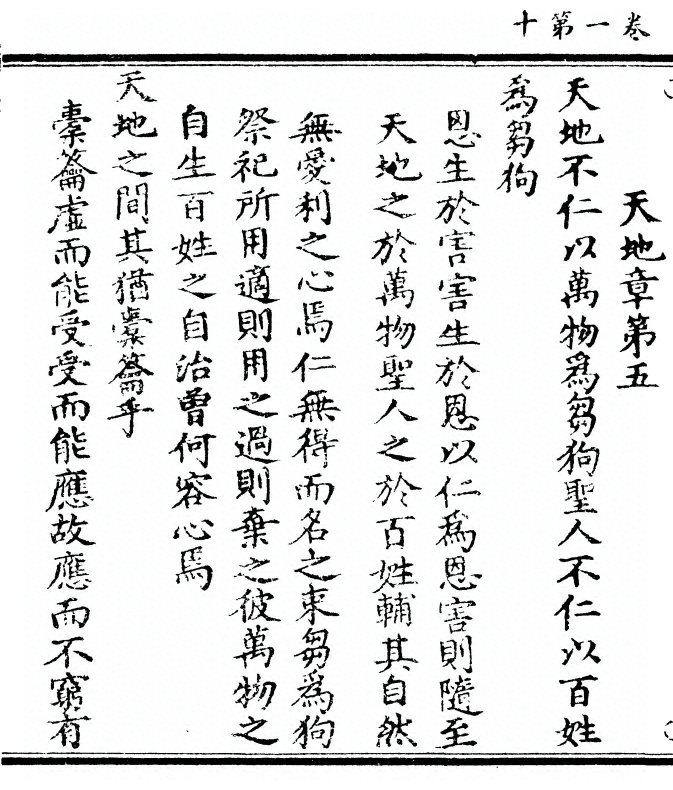 卷一第十
天地章第五
天地不仁以萬物爲芻狗聖人不仁以百姓
爲芻狗
恩生於害害生於恩以仁爲恩害則隨至
天地之於萬物聖人之於百姓輔其自然
無愛利之心焉仁無得而名之束芻爲狗
祭祀所用適則用之過則棄之彼萬物之
自生百姓之自治曾何容心焉
天地之間其猶橐籥乎
橐籥虛而能受受而能應故應而不窮有